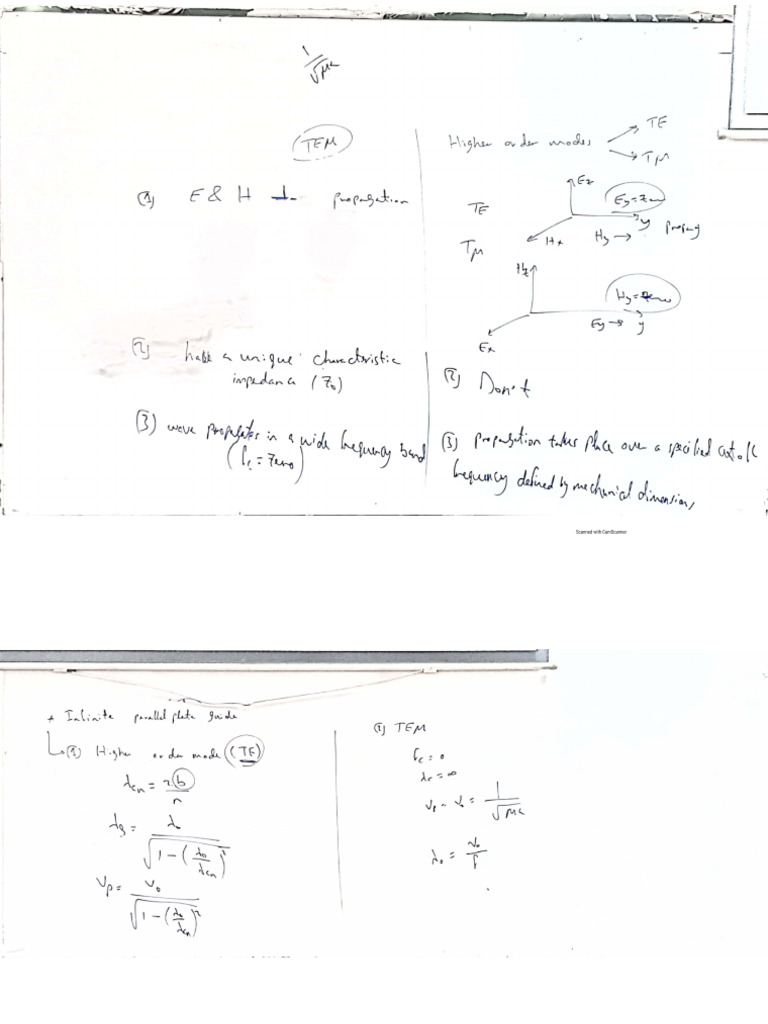 1/√με
TEM
(1) E & H ⊥ propagation
(2) have a unique characteristic
impedance (Z₀)
(3) wave propagates in a wide frequency band
(fc = zero)
Higher order modes → TE
→ TM
TE
Ez
Ey = zero
Hx
Hy → y propag
TM
Hz
Hy = zero
Ex
Ey → y
(2) Don't
(3) propagation takes place over a specified cutoff
frequency defined by mechanical dimensions
Scanned with CamScanner
* Infinite parallel plate guide
(1) Higher order mode (TE)
λcn = 2b/n
λg = λ₀/√(1 - (λ₀/λcn)²)
Vp = V₀/√(1 - (λ₀/λcn)²)
(2) TEM
fc = 0
λc = ∞
Vp = V₀ = 1/√με
λ₀ = V₀/f